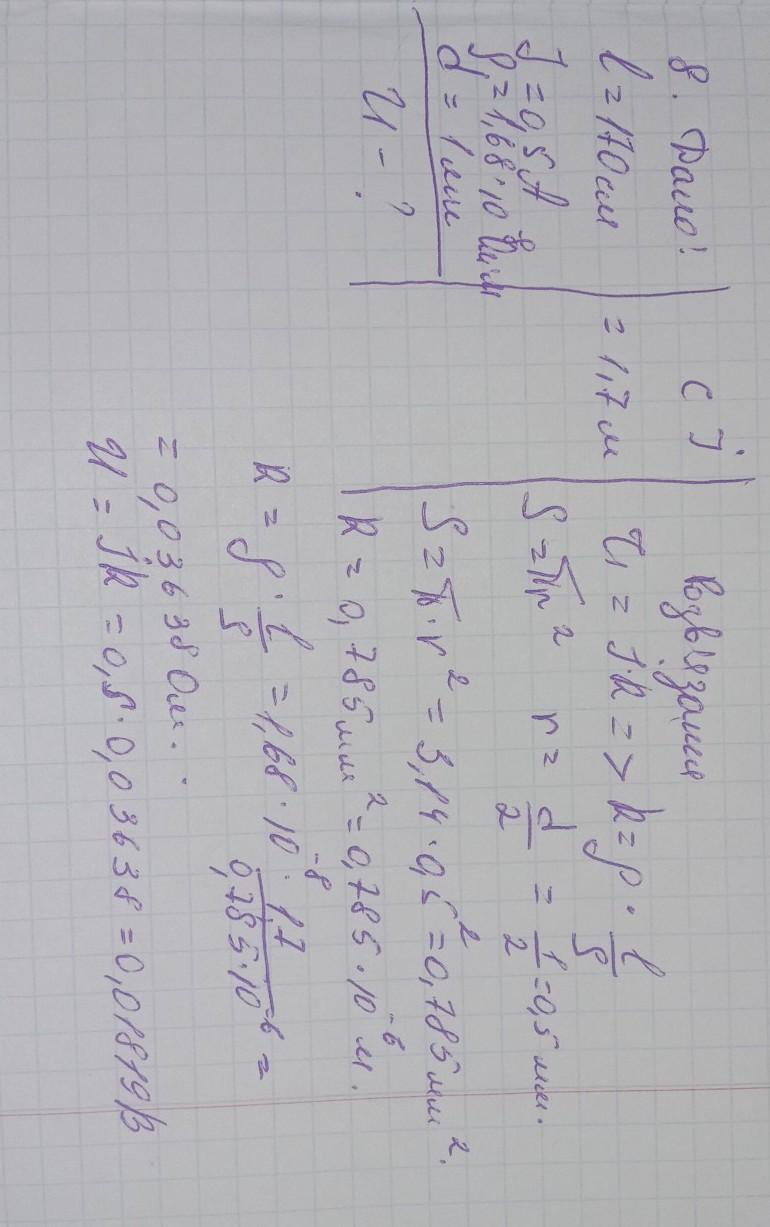 8. Дано:
l = 170 см
J = 0,5 A
ρ = 1,68 · 10⁻⁸ Ом·м
d = 1 мм
U - ?
СІ
= 1,7 м
Розв'язання
U = J·R => R = ρ · l/S
S = πr² r = d/2 = 1/2 = 0,5 мм.
S = π · r² = 3,14 · 0,5² = 0,785 мм².
R = 0,785 мм² = 0,785 · 10⁻⁶ м.
R = ρ · l/S = 1,68 · 10⁻⁸ · 1,7/0,785·10⁻⁶ =
= 0,03638 Ом.
U = JR = 0,5 · 0,03638 = 0,01819 В